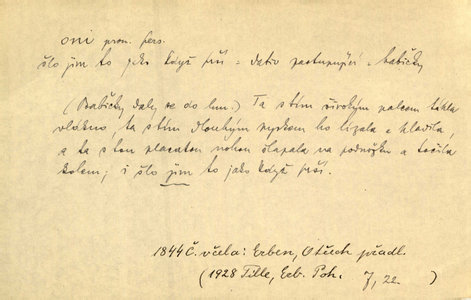 oni pron. pers.
šlo jim to jako když prší = dativ zastupující = babičky
(Babičky daly se do hned.) Ta s tím širokým palcem táhla
vlákno, ta s tím dlouhým pyskem ho lízala a hladila,
a ta s tou placatou nohou šlapala na podnožku a točila
kolem; i šlo jim to jako když prší.
1844 Č. včela: Erben, O třech přadl.
(1928 Tille, Erb. Poh. I, 22. )